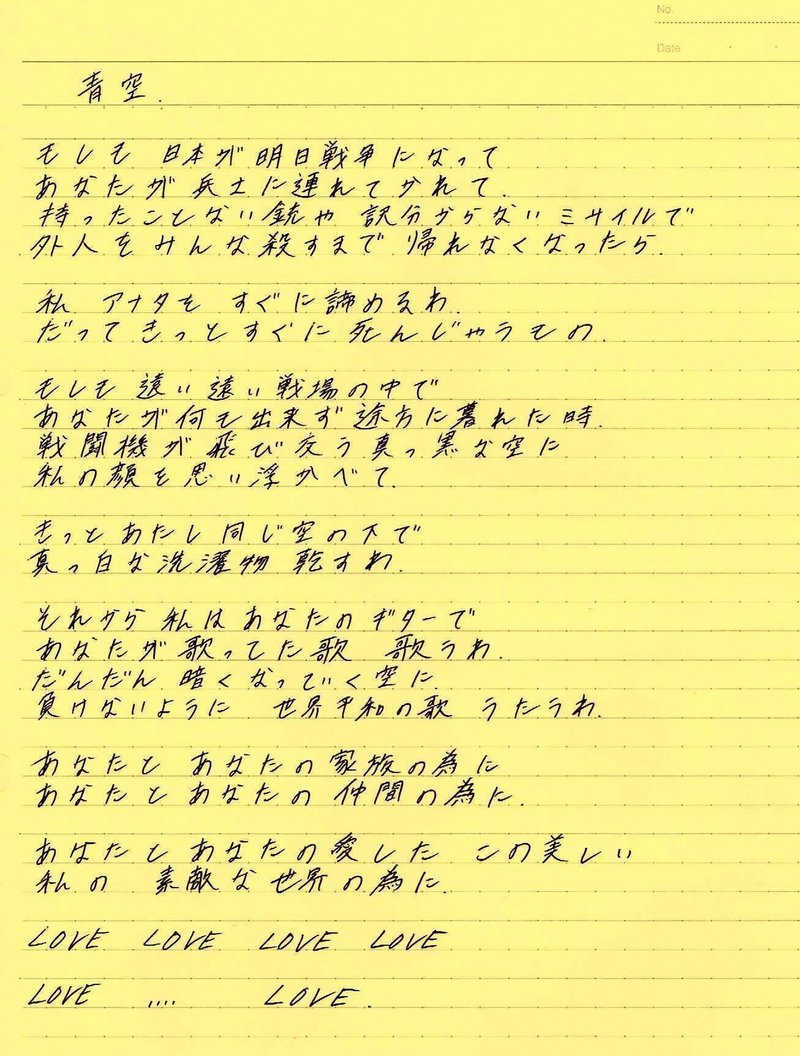 No.
Date
青空.
もしも 日本が明日戦争になって
あなたが兵士に連れてかれて.
持ったことない銃や 訳分からないミサイルで
外人をみんな殺すまで 帰れなくなったら.
私 アナタを すぐに諦めるわ.
だってきっとすぐに 死んじゃうもの.
もしも 遠い遠い戦場の中で
あなたが何も出来ず途方に暮れた時.
戦闘機が飛び交う真っ黒な空に
私の顔を思い浮かべて.
きっとあたし同じ空の下で
真っ白な洗濯物 乾すわ.
それから 私はあなたのギターで
あなたが歌ってた歌 歌うわ.
だんだん 暗くなっていく空に.
負けないように 世界平和の歌 うたうわ.
あなたと あなたの家族の為に
あなたとあなたの仲間の為に.
あなたとあなたの愛した この美しい
私の 素敵な世界の為に.
LOVE LOVE LOVE LOVE
LOVE .... LOVE.